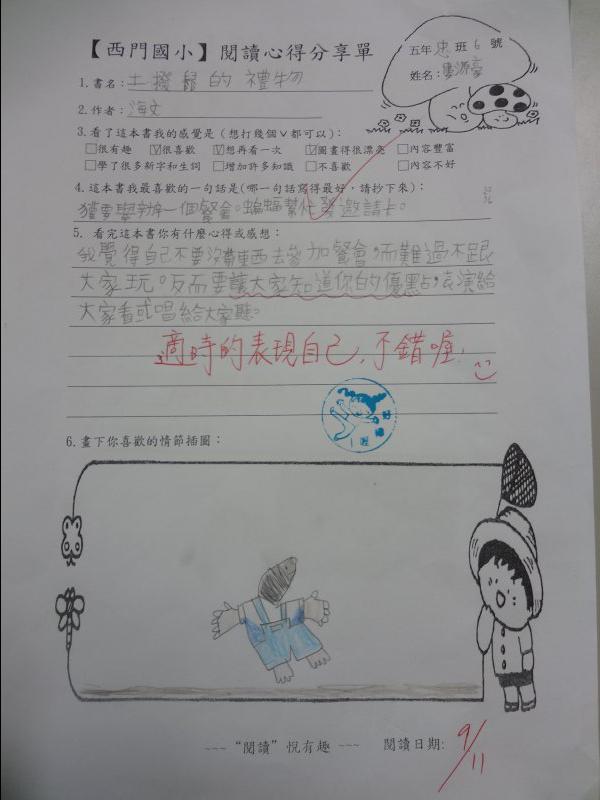 【西門國小】閱讀心得分享單
五年忠班6號
姓名:源豪
1.書名:土撥鼠的禮物
2.作者:海文
3.看了這本書我的感覺是(想打幾個ˇ都可以):
□很有趣 ☑很喜歡 ☑想再看一次 ☑圖畫得很漂亮 □內容豐富
□學了很多新字和生詞 □增加許多知識 □不喜歡 □內容不好
4.這本書我最喜歡的一句話是(哪一句話寫得最好,請抄下來):
獾要舉辦一個餐會。蝙蝠幫忙發邀請卡。
5. 看完這本書你有什麼心得或感想:
我覺得自己不要沒帶東西去參加餐會,而難過不跟
大家玩。反而要讓大家知道你的優點,表演給
大家看或唱給大家聽。
適時的表現自己,不錯喔!
6.畫下你喜歡的情節插圖:
~~~ “閱讀”悅有趣 ~~~ 閱讀日期: 9/11